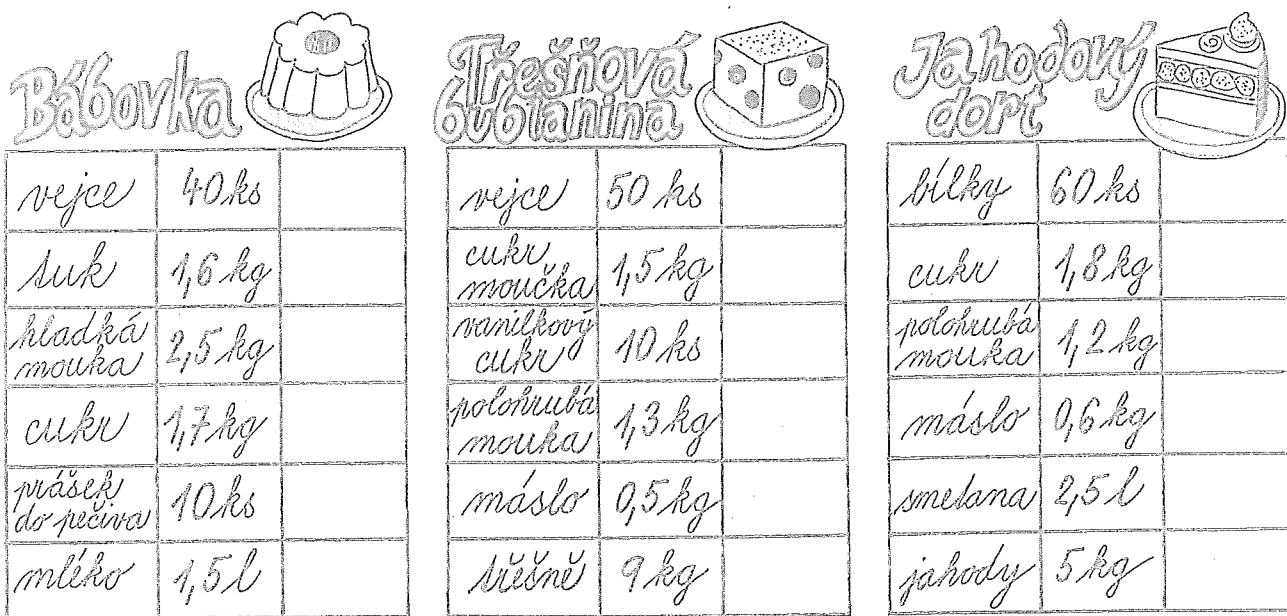 Bábovka
vejce 40 ks
tuk 1,6 kg
hladká
mouka 2,5 kg
cukr 1,7 kg
prášek
do pečiva 10 ks
mléko 1,5 l
Třešňová
bublanina
vejce 50 ks
cukr
moučka 1,5 kg
vanilkový
cukr 10 ks
polohrubá
mouka 1,3 kg
máslo 0,5 kg
třešně 9 kg
Jahodový
dort
bílky 60 ks
cukr 1,8 kg
polohrubá
mouka 1,2 kg
máslo 0,6 kg
smetana 2,5 l
jahody 5 kg